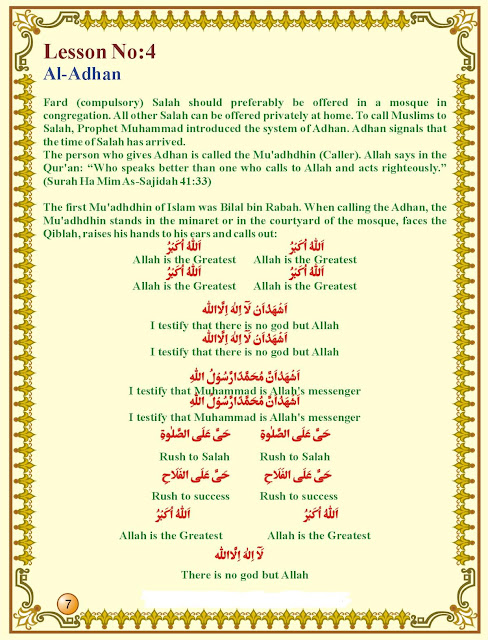 Lesson No:4
Al-Adhan
Fard (compulsory) Salah should preferably be offered in a mosque in
congregation. All other Salah can be offered privately at home. To call Muslims to
Salah, Prophet Muhammad introduced the system of Adhan. Adhan signals that
the time of Salah has arrived.
The person who gives Adhan is called the Mu'adhdhin (Caller). Allah says in the
Qur'an: “Who speaks better than one who calls to Allah and acts righteously.”
(Surah Ha Mim As-Sajidah 41:33)
The first Mu'adhdhin of Islam was Bilal bin Rabah. When calling the Adhan, the
Mu'adhdhin stands in the minaret or in the courtyard of the mosque, faces the
Qiblah, raises his hands to his ears and calls out:
اَللّٰهُ اَكْبَرُ اَللّٰهُ اَكْبَرُ
Allah is the Greatest Allah is the Greatest
اَللّٰهُ اَكْبَرُ اَللّٰهُ اَكْبَرُ
Allah is the Greatest Allah is the Greatest
اَشْهَدُاَن لَآ اِلٰهَ اِلَّااللّٰه
I testify that there is no god but Allah
اَشْهَدُاَن لَآ اِلٰهَ اِلَّااللّٰه
I testify that there is no god but Allah
اَشْهَدُاَنَّ مُحَمَّدًارَّسُوْلُ اللّٰهِ
I testify that Muhammad is Allah's messenger
اَشْهَدُاَنَّ مُحَمَّدًارَّسُوْلُ اللّٰهِ
I testify that Muhammad is Allah's messenger
حَىَّ عَلَى الصَّلٰوةِ حَىَّ عَلَى الصَّلٰوةِ
Rush to Salah Rush to Salah
حَىَّ عَلَى الفَلَاحِ حَىَّ عَلَى الفَلَاحِ
Rush to success Rush to success
اَللّٰهُ اَكْبَرُ اَللّٰهُ اَكْبَرُ
Allah is the Greatest Allah is the Greatest
لَآ اِلٰهَ اِلَّااللّٰه
There is no god but Allah
7